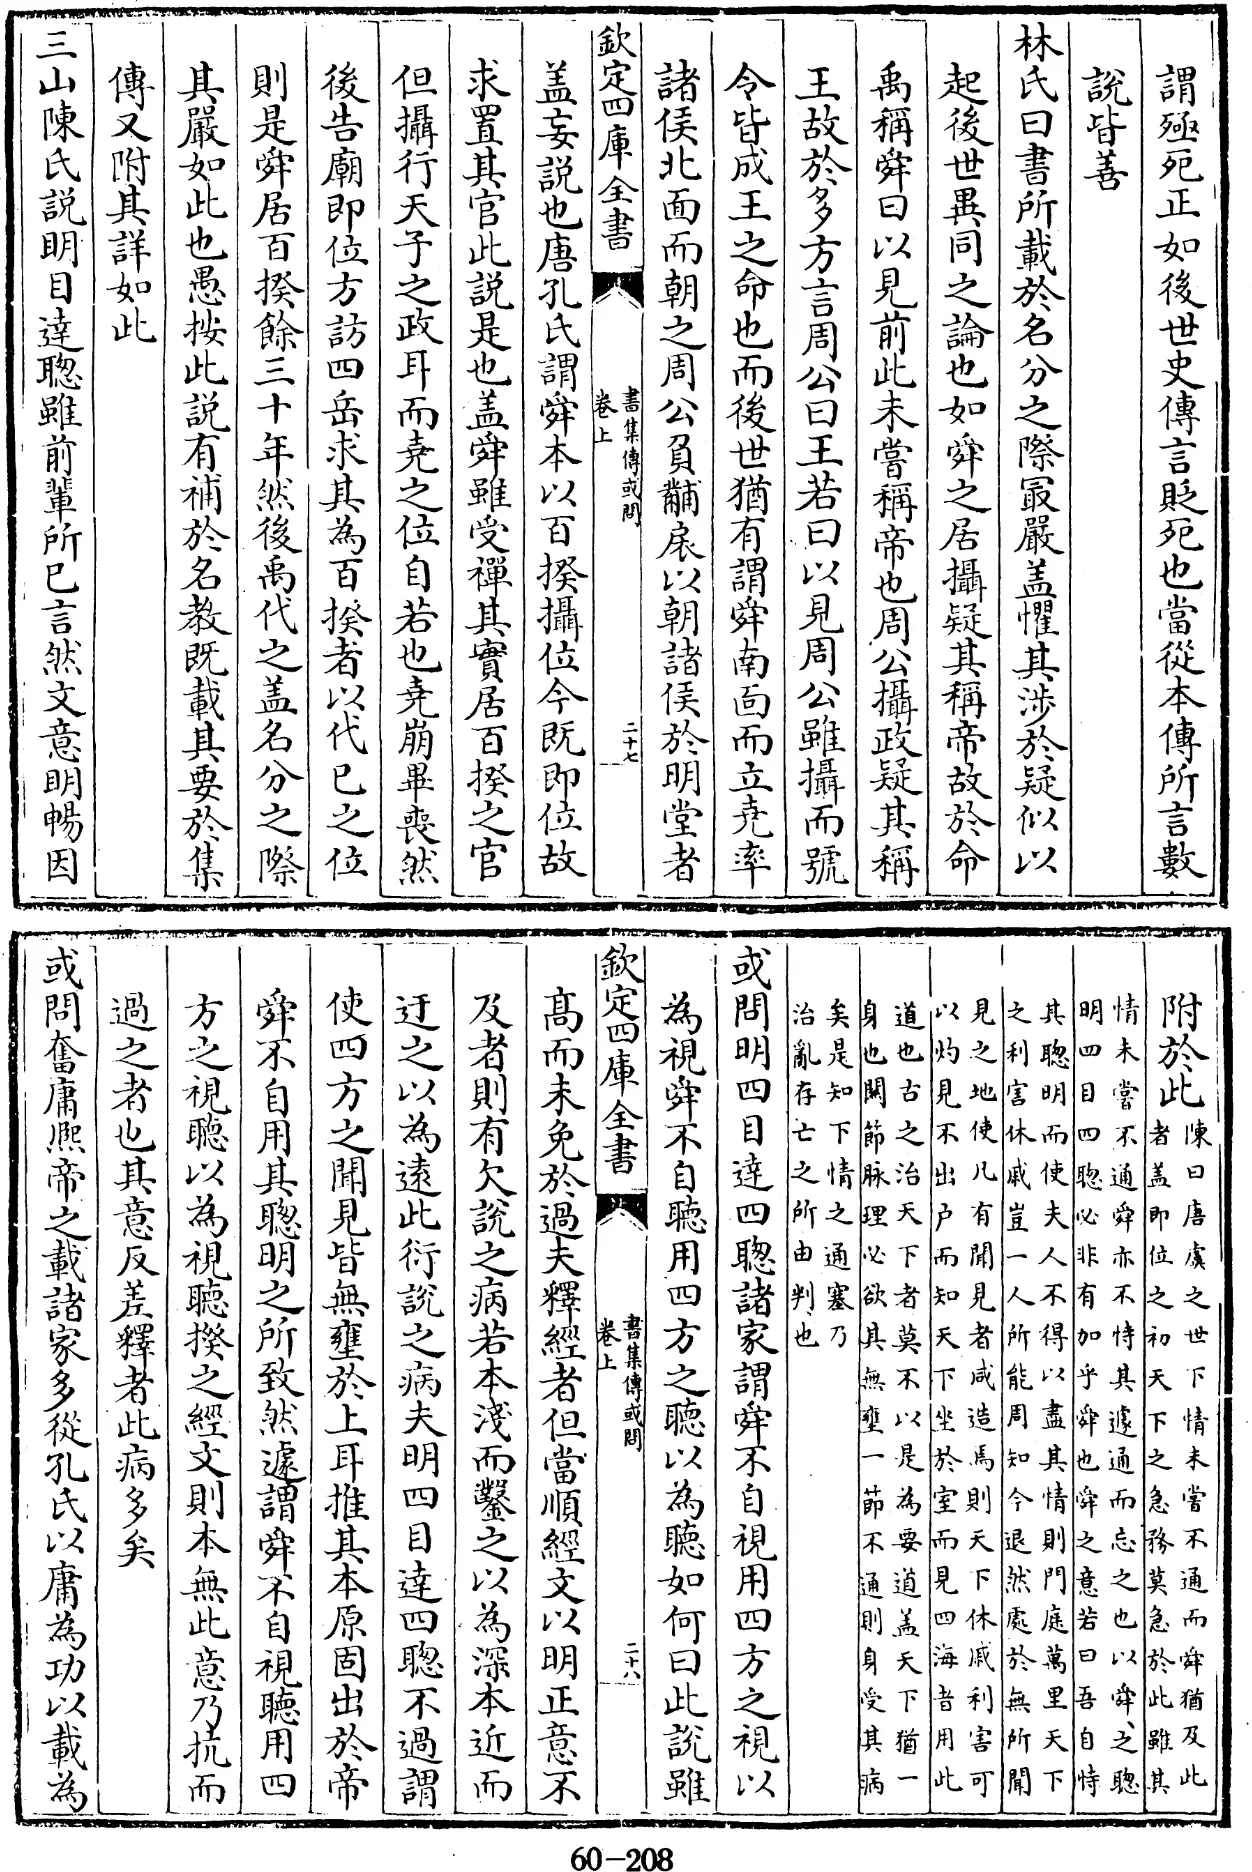 謂殛死正如後世史傳言貶死也當從本傳所言數
說皆善
林氏曰書所載於名分之際冣嚴盖懼其涉於疑似以
起後世異同之論也如舜之居攝疑其稱帝故於命
禹稱舜曰以見前此未嘗稱帝也周公攝政疑其稱
王故於多方言周公曰王若曰以見周公雖攝而號
令皆成王之命也而後世猶有謂舜南面而立堯率
諸侯北面而朝之周公負黼扆以朝諸侯於明堂者
欽定四庫全書
書集傳或問
卷上
二十七
盖妄説也唐孔氏謂舜本以百揆攝位今既即位故
求置其官此説是也盖舜雖受禪其實居百揆之官
但攝行天子之政耳而堯之位自若也堯崩畢喪然
後告廟即位方訪四岳求其為百揆者以代已之位
則是舜居百揆餘三十年然後禹代之盖名分之際
其嚴如此也愚按此説有補於名教既載其要於集
傳又附其詳如此
三山陳氏説明目達聰雖前輩所已言然文意明暢因
附於此
陳曰唐虞之世下情未嘗不通而舜猶及此
者盖即位之初天下之急務莫急於此雖其
情未嘗不通舜亦不恃其遽通而忘之也以舜之聰
明四目四聰必非有加乎舜也舜之意若曰吾自恃
其聰明而使夫人不得以盡其情則門庭萬里天下
之利害休戚豈一人所能周知今退然處於無所聞
見之地使凡有聞見者咸造焉則天下休戚利害可
以灼見不出户而知天下坐於室而見四海者用此
道也古之治天下者莫不以是為要道盖天下猶一
身也關節脉理必欲其無壅一節不通則身受其病
矣是知下情之通塞乃
治亂存亡之所由判也
或問明四目達四聰諸家謂舜不自視用四方之視以
為視舜不自聽用四方之聽以為聽如何曰此説雖
欽定四庫全書
書集傳或問
卷上
二十八
髙而未免於過夫釋經者但當順經文以明正意不
及者則有欠説之病若本淺而鑿之以為深本近而
迂之以為遠此衍説之病夫明四目達四聰不過謂
使四方之聞見皆無壅於上耳推其本原固出於帝
舜不自用其聰明之所致然遽謂舜不自視聽用四
方之視聽以為視聽揆之經文則本無此意乃抗而
過之者也其意反差釋者此病多矣
或問奮庸熈帝之載諸家多從孔氏以庸為功以載為
60-208